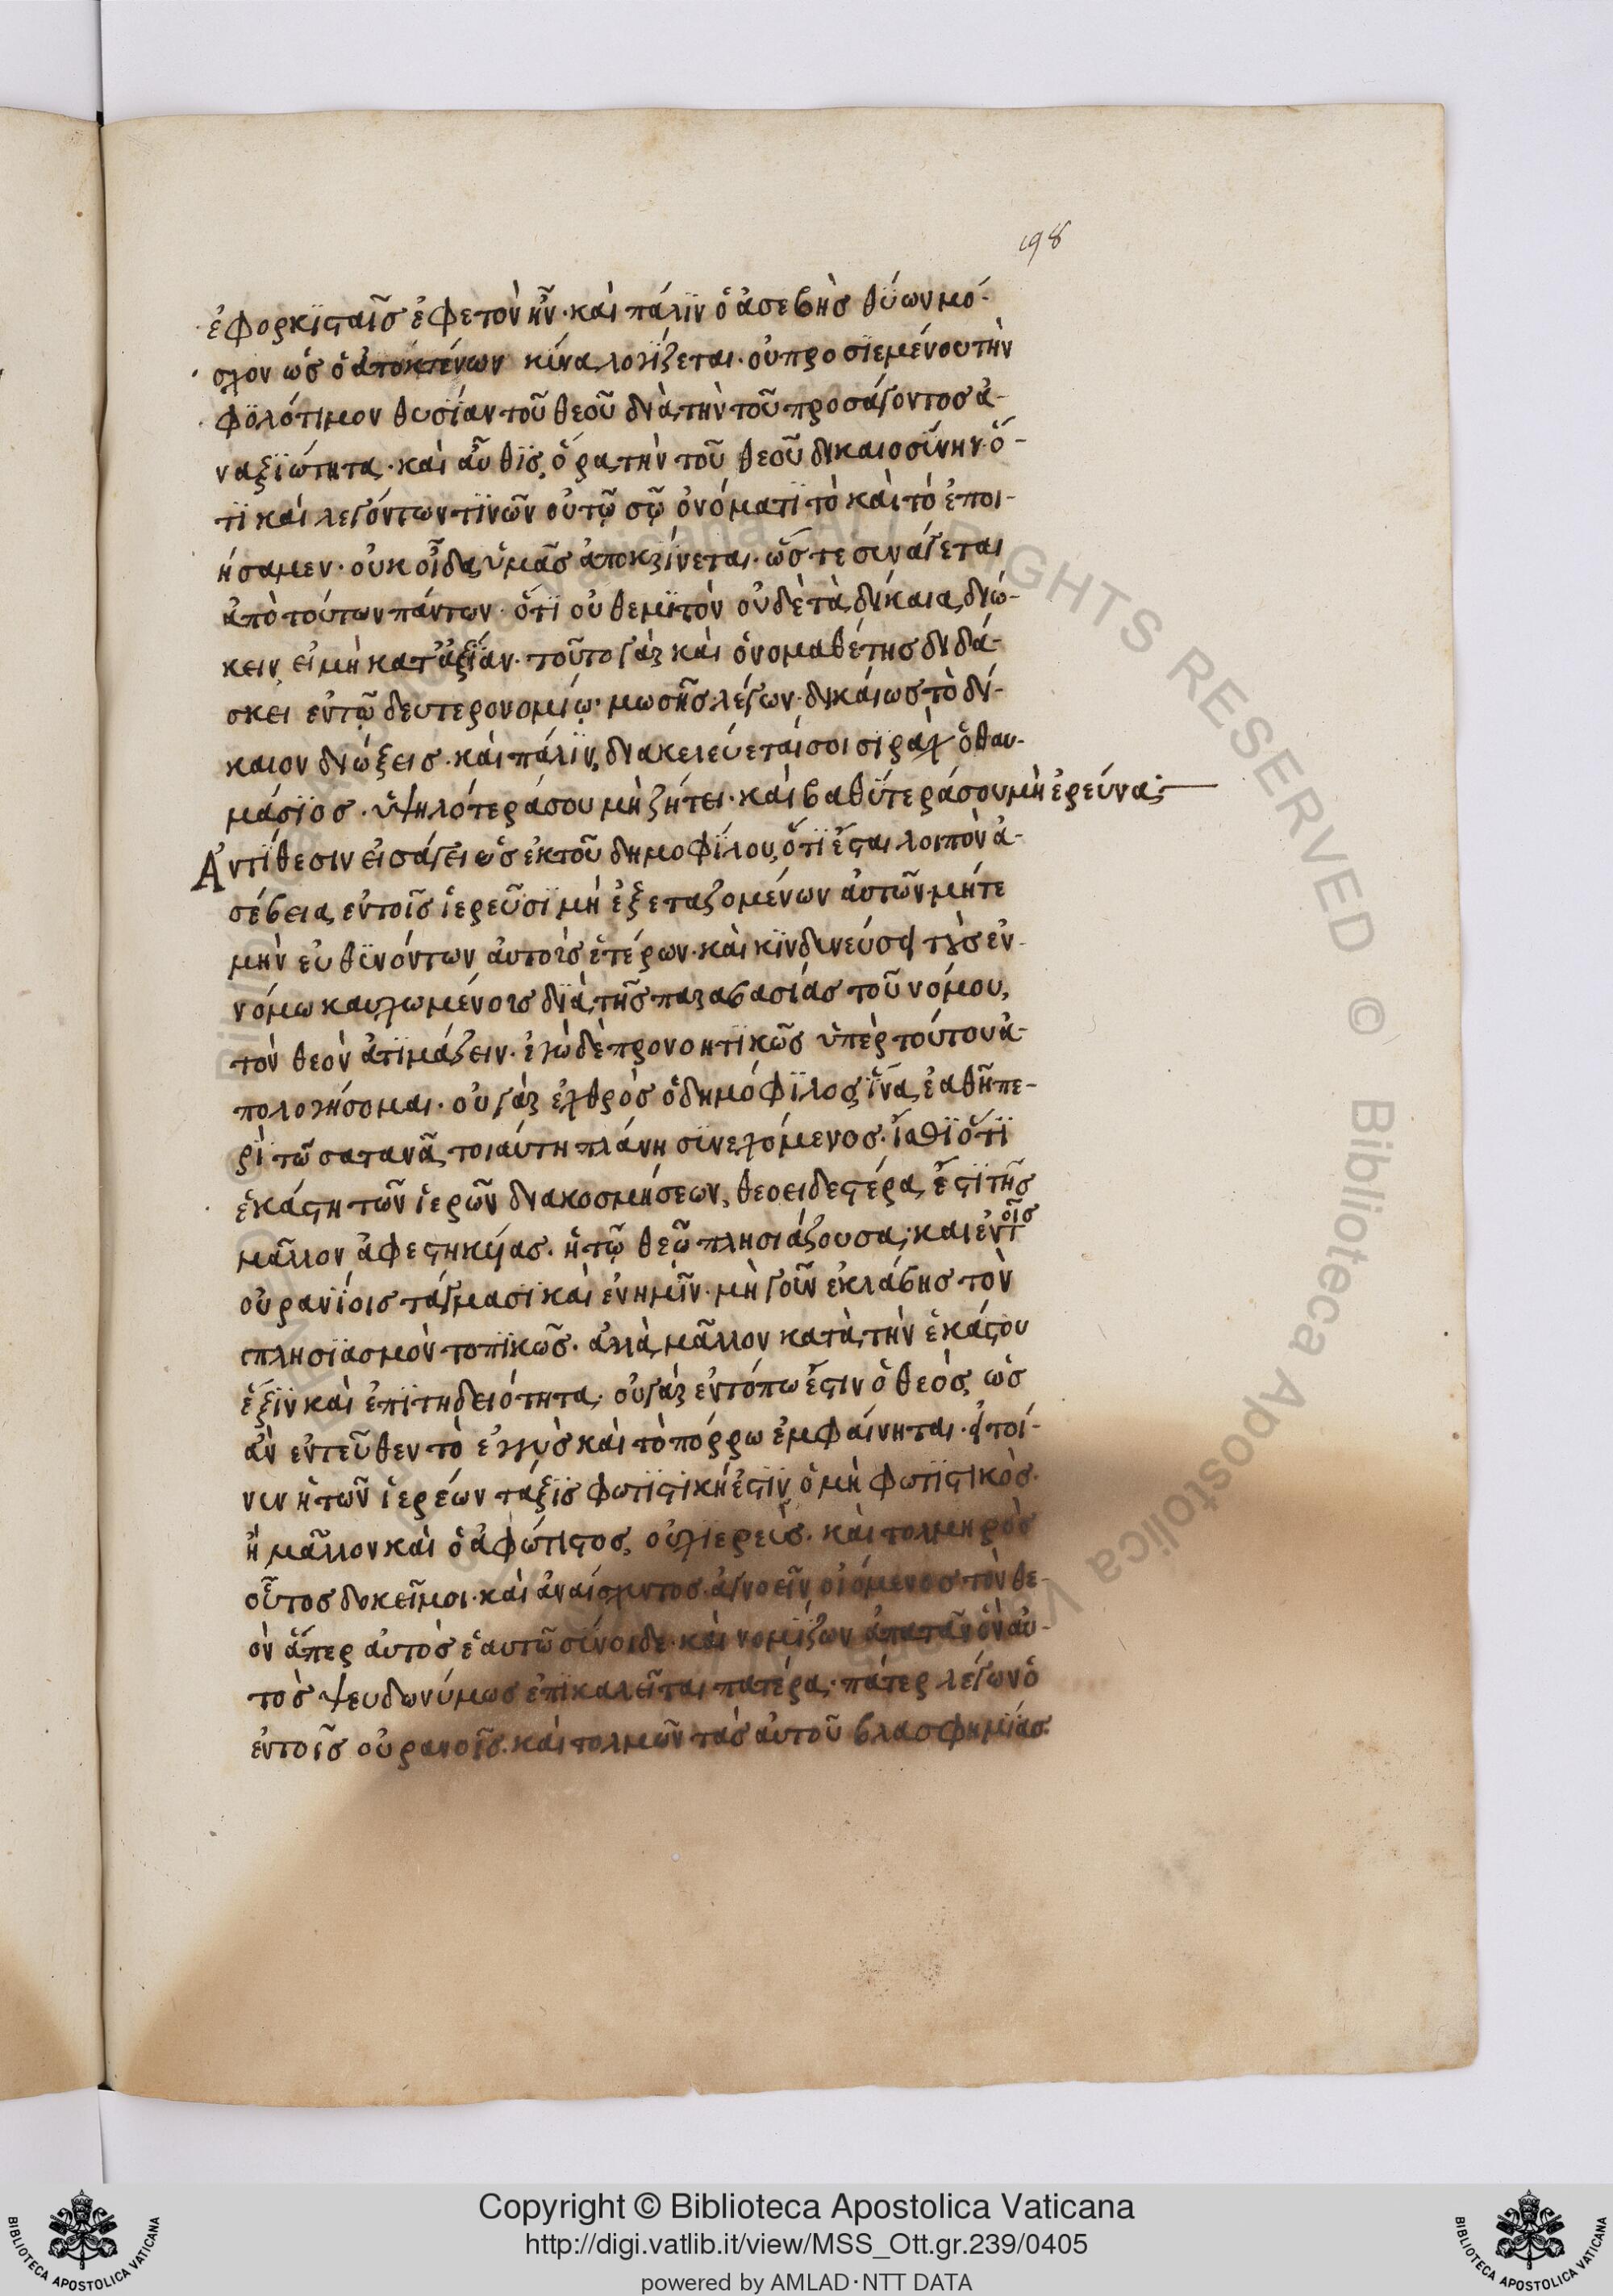 198
ἐφορκϊσταῖς ἐφετὸν ἦν· καὶ πάλϊν ὁ ἀσεβὴς θύων μό-
σχον ὡς ὁ ἀποκτένων κύνα λογΐζεται· οὐ προσϊεμένου τὴν
φϊλότιμον θυσΐαν τοῦ θεοῦ διὰ τὴν τοῦ προσάγοντος ἀ-
ναξϊώτητα· καὶ αὖθϊς, ὅρα τὴν τοῦ θεοῦ δικαιοσΰνην· ὅ-
τϊ καὶ λεγόντων τϊνῶν οὐ τῷ σῷ ὀνόματϊ τὸ καὶ τὸ ἐποι-
ήσαμεν· οὐκ οἶδα ὑμᾶς ἀποκρίνεται· ὥστε συνάγεται
ἀπὸ τούτων πάντων· ὅτϊ οὐ θεμϊτὸν οὐδὲ τὰ δίκαια διώ-
κειν, εἰ μὴ κατ' ἀξΐαν· τοῦτο γὰρ καὶ ὁ νομοθέτης διδά-
σκει ἐν τῷ δευτερονομίῳ· μωσῆς λέγων· δικαίως τὸ δί-
καιον διώξεις· καὶ πάλϊν, διακελεύεταί σοι σϊρὰχ ὁ θαυ-
μάσϊος· ὑψηλότερά σου μὴ ζήτει· καὶ βαθΰτερά σου μὴ ἐρεύνα;
Ἀντΐθεσιν εἰσάγει ὡς ἐκ τοῦ δημοφΐλου, ὅτϊ ἔσται λοιπὸν ἀ-
σέβεια ἐν τοῖς ἱερεῦσϊ μὴ ἐξεταζομένων αὐτῶν· μήτε
μὴν εὐθϋνόντων αὐτοὶς ἑτέρων· καὶ κϊνδυνεύσει τοῖς ἐν
νόμω καυχωμένοις διὰ τῆς παραβασίας τοῦ νόμου,
τὸν θεὸν ἀτϊμάζειν· ἐγὼ δὲ προνοητϊκῶς ὑπὲρ τούτου ἀ-
πολογήσομαι· οὐ γὰρ ἐχθρὸς ὁ δημόφϊλος, ἵνα ἐαθῆ πε-
ρὶ τῶ σατανᾶ, τοιαύτη πλάνη συνεχόμενος· ἴσθϊ ὅτϊ
ἑκάστη τῶν ἱερῶν διακοσμήσεων, θεοειδεστέρα, ἐστϊ τῆς
μᾶλλον ἀφεστηκυίας· ἡ τῷ θεῷ πλησιάζουσα· καὶ ἐν τοῖς
οὐρανΐοις τάγμασϊ καὶ ἐν ημῖν· μὴ γοῦν ἐκλάβης τὸν
πλησϊασμὸν τοπϊκῶς· ἀλλὰ μᾶλλον κατὰ τὴν ἑκάστου
ἕξϊν καὶ ἐπϊτηδειότητα· οὐ γὰρ ἐν τόπω ἐστιν ὁ θεός, ὡς
ἂν ἐντεῦθεν τὸ ἐγγὺς καὶ τὸ πόρρω ἐμφαίνηται· εἰ τοί-
νυν ἡ τῶν ἱερέων τάξϊς φωτϊστϊκή ἐστϊν, ὁ μὴ φωτϊστικὸς·
ἢ μᾶλλον καὶ ὁ ἀφώτιστος, οὐχ ἱερεὺς· καὶ τολμηρὸς
οὗτος δοκεῖ μοι· καὶ ἀναίσχυντος· ἀγνοεῖν οἰόμενος τὸν θε-
ὸν ἅπερ αὐτὸς ἑαυτῶ σύνοιδε· καὶ νομίζων ἀπατᾶν ὃν αὐ-
τὸς ψευδωνύμως ἐπικαλεῖται πατέρα· πάτερ λέγων ὁ
ἐν τοῖς οὐρανοῖς· καὶ τολμῶν τὰς αὐτοῦ βλασφημίας·
Copyright © Biblioteca Apostolica Vaticana
http://digi.vatlib.it/view/MSS_Ott.gr.239/0405
powered by AMLAD·NTT DATA